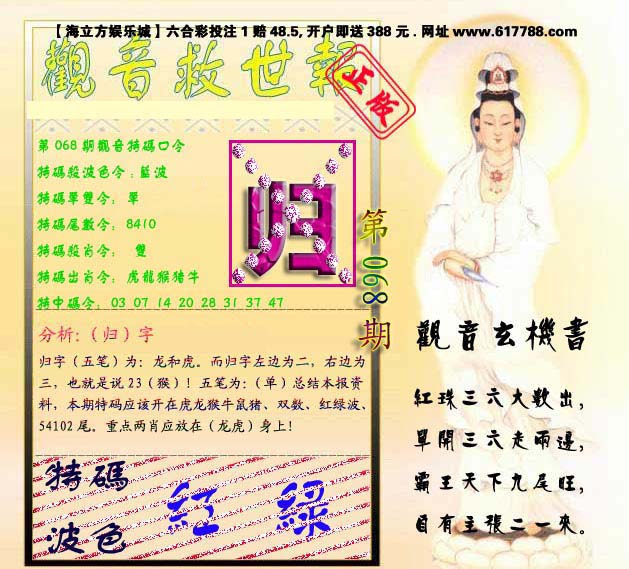 【海立方娱乐城】六合彩投注1赔48.5,开户即送388元.网址www.617788.com
觀音救世報
正版
第068期觀音特碼口令
特碼殺波色令:藍波
特碼單雙令: 單
特碼尾數令: 8410
特碼殺肖令: 雙
特碼出肖令: 虎龍猴猪牛
特中碼令: 03 07 14 20 28 31 37 47
归
第068期
分析:（归）字
归字（五笔）为：龙和虎。而归字左边为二，右边为
三，也就是说23（猴）！五笔为：（单）总结本报资
料，本期特码应该开在虎龙猴牛鼠猪、双数、红绿波、
54102尾。重点两肖应放在（龙虎）身上！
特碼
波色
紅 綠
觀音玄機書
紅珠三六大數出,
單開三六走兩邊,
霸王天下九尾旺,
自有主張二一來。